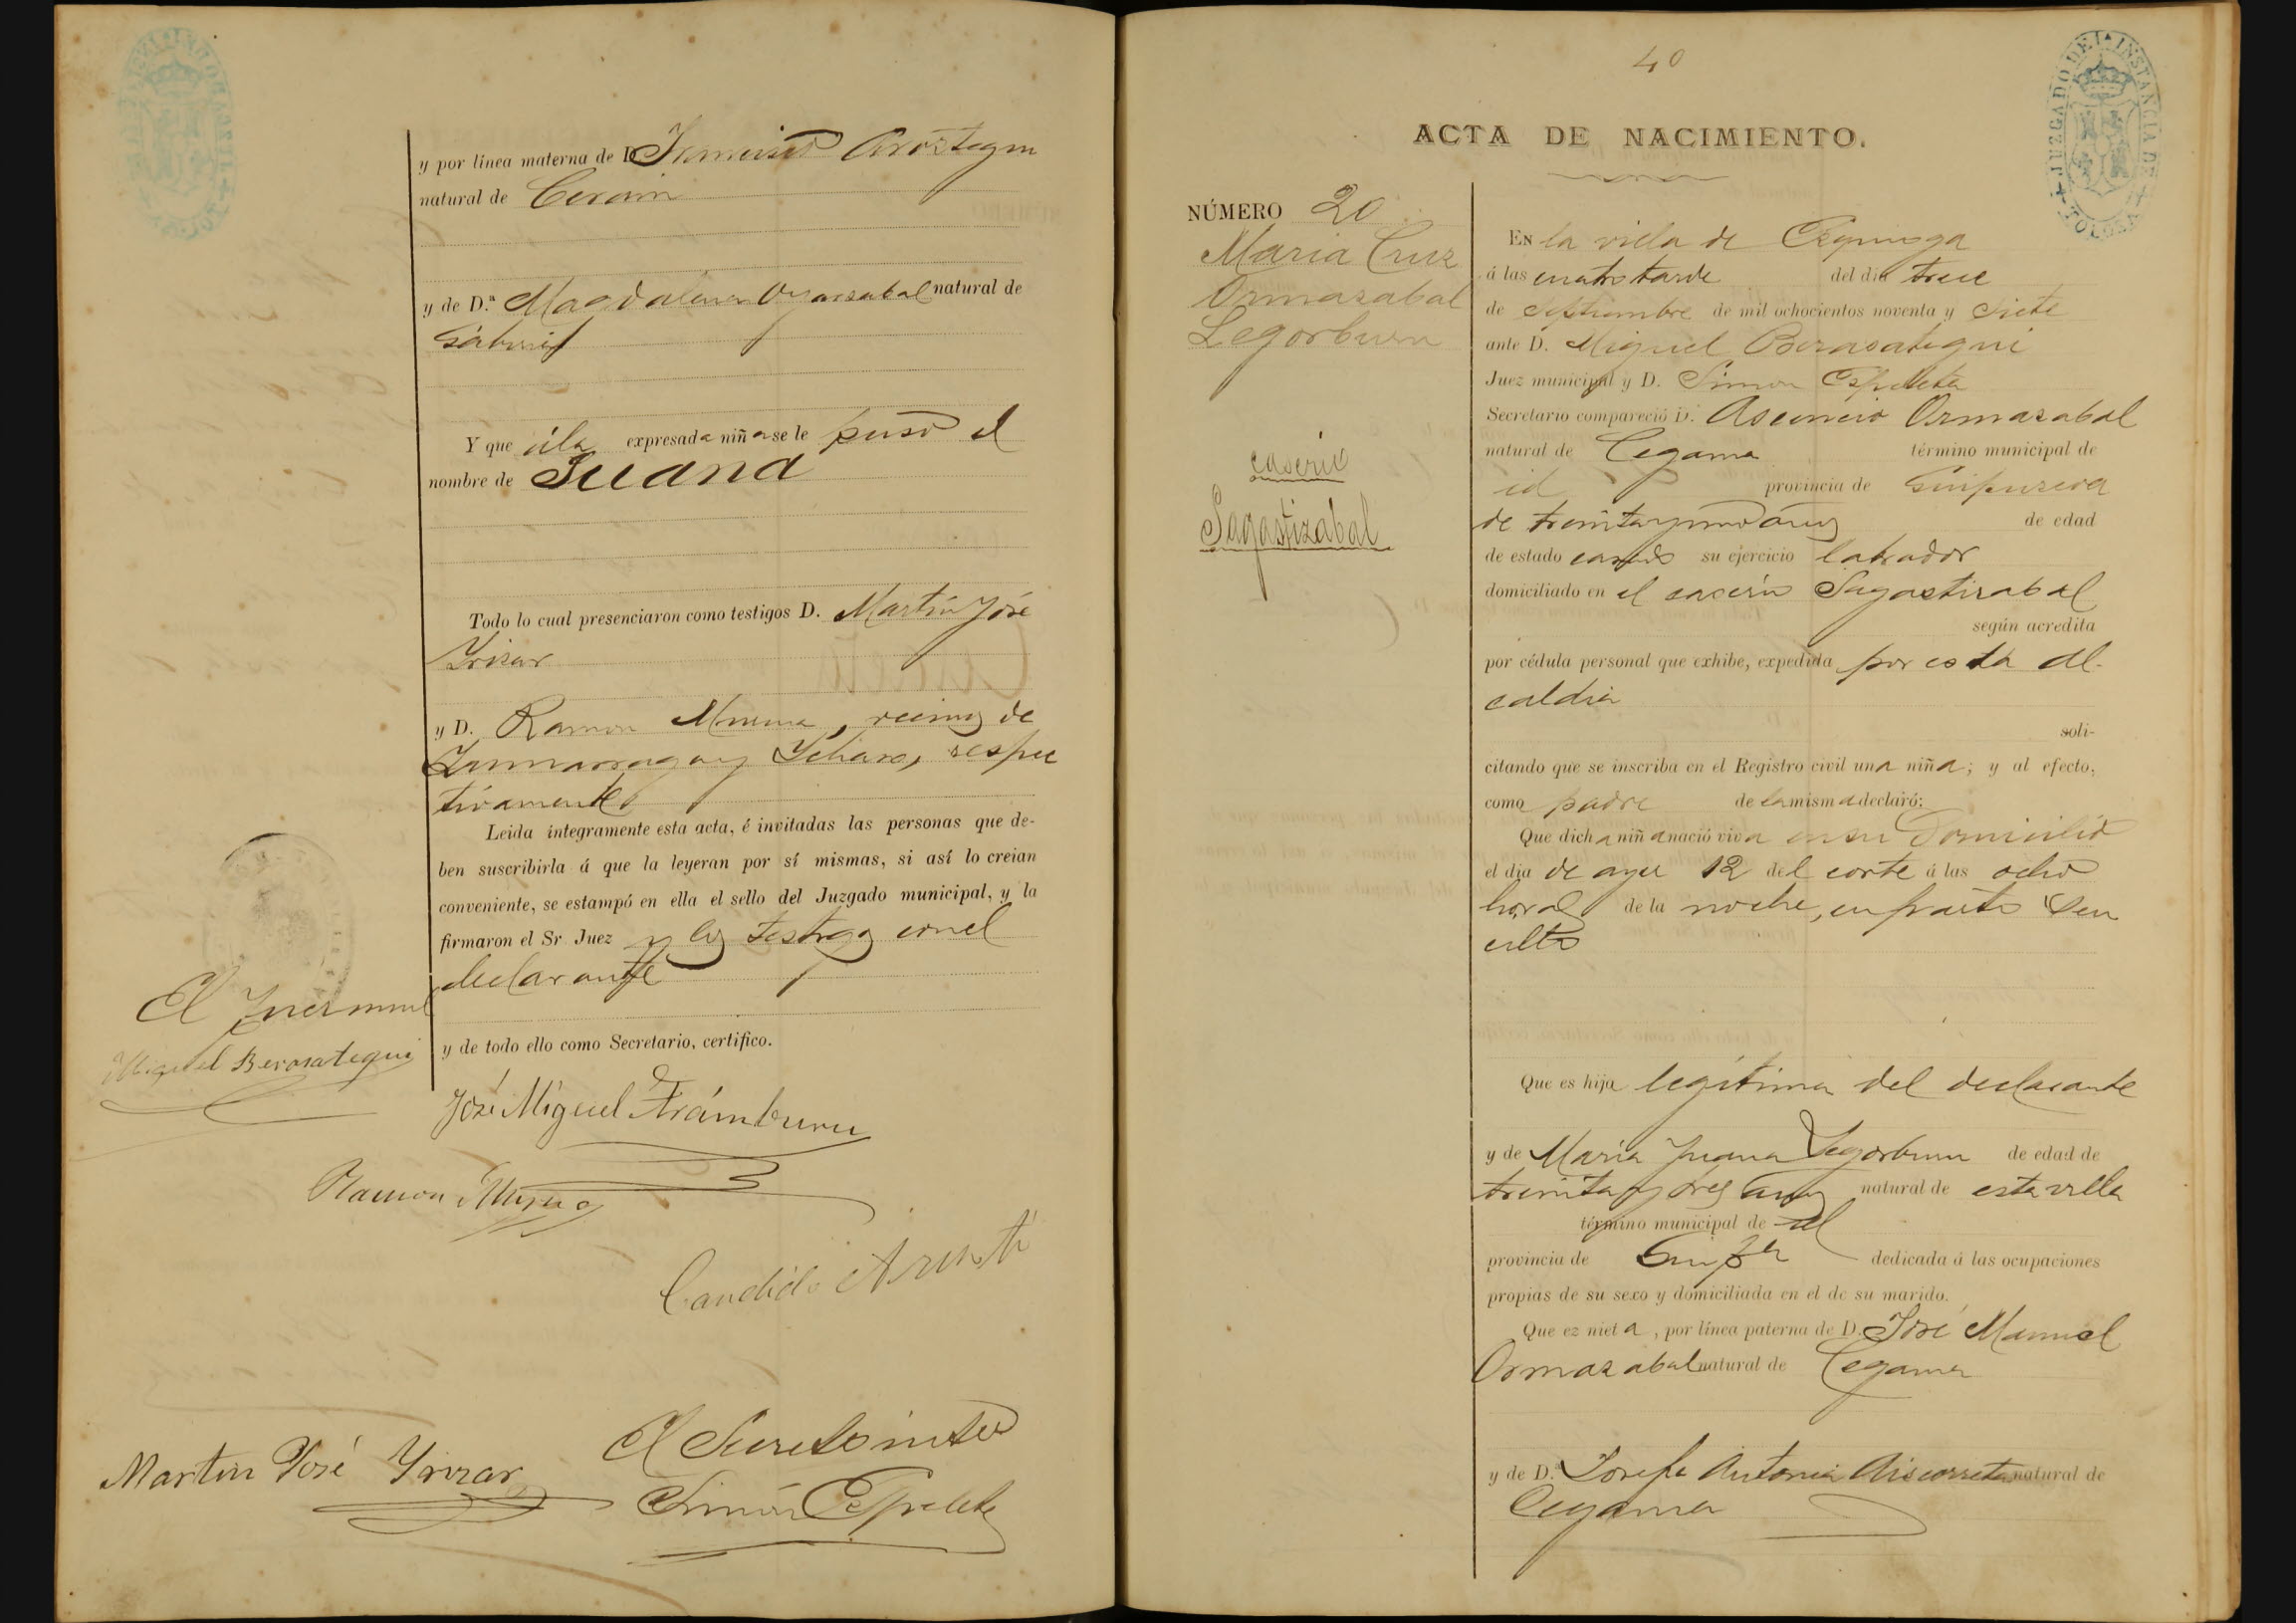 y por línea materna de D. Francisco Aróstegui
natural de Cerain
y de D.ª Magdalena Oyarzabal natural de
Gabiria
Y que á la expresada niña se le puso el
nombre de Juana
Todo lo cual presenciaron como testigos D. Martin José
Yrizar
y D. Ramon Mugica, vecinos de
Zumarraga y Ychaso, respec
tivamente
Leida íntegramente esta acta, é invitadas las personas que de-
ben suscribirla á que la leyeran por sí mismas, si así lo creian
conveniente, se estampó en ella el sello del Juzgado municipal, y la
firmaron el Sr. Juez y los testigos con el
declarante
y de todo ello como Secretario, certifico.
El Juez munl
Miguel Berasategui
José Miguel Arámburu
Ramon Mugica
Candido
El Secreto inteo
Martin José Yrizar
Simón Espeleta
40
JUZGADO DE 1ª INSTANCIA DE TOLOSA
ACTA DE NACIMIENTO.
NÚMERO 20
Maria Cruz
Ormazabal
Legorburu
caserio
Sagastizabal
En la villa de Ezquioga
á las cuatro tarde del dia trece
de Septiembre de mil ochocientos noventa y siete
ante D. Miguel Berasategui
Juez municipal y D. Simon Espeleta
Secretario compareció D. Asencio Ormazabal
natural de Cegama término municipal de
id provincia de Guipuzcoa
de treinta y un años de edad
de estado casado su ejercicio labrador
domiciliado en el caserio Sagastizabal
según acredita
por cédula personal que exhibe, expedida por esta Al-
caldia
soli-
citando que se inscriba en el Registro civil una niña; y al efecto,
como padre de la misma declaró:
Que dicha niña nació viva en su domicilio
el dia de ayer 12 del corte á las ocho
horas de la noche, en parto sen
cillo
Que es hija legítima del declarante
y de Maria Juana Legorburu de edad de
treinta y tres años natural de esta villa
término municipal de id
provincia de Guipza dedicada á las ocupaciones
propias de su sexo y domiciliada en el de su marido.
Que ez nieta, por línea paterna de D. José Manuel
Ormazabal natural de Cegama
y de D.ª Josefa Antonia Aiscorreta natural de
Cegama